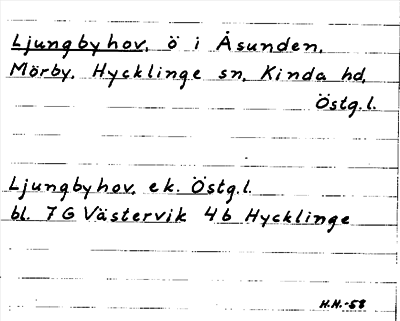 Ljungbyhov, ö i Åsunden,
Mörby, Hycklinge sn, Kinda hd,
Östg.l.
Ljungbyhov, ek. Östg.l.
bl. 7G Västervik 4b Hycklinge
H.H.-58